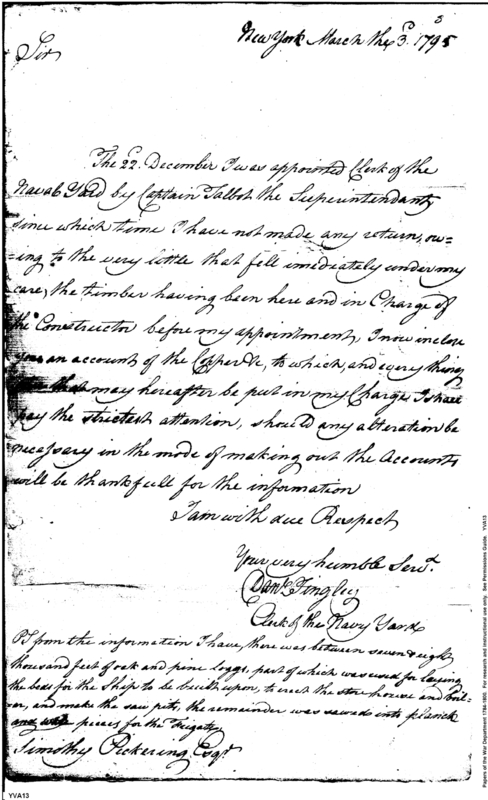 New York March the 3d. 1795
Sir
The 22d. December I was appointed Clerk of the
Naval Yard by Captain Talbot the Superintendant
since which time I have not made any return, ow=
=ing to the very little that fell imidiately under my
care, the timber having been here and in Charge of
the Constructor before my appointment, I now inclose
you an account of the Copper &c, to which, and every thing
that may hereafter be put in my Charge I shall
pay the strictest attention, should any alteration be
necessary in the mode of making out the Accounts
will be thankfull for the information
I am with due Respect
Your very humble Servt.
Danl. Tingley
Clerk of the Navy Yard
PS from the information I have, there was between seven & eight
thousand feet of oak and pine loggs, part of which was used for laying
the beds for the Ship to be built upon, to erect the store house and
and make the saw pits, the remainder was sawed into planck
pieces for the Frigate
Timothy Pickering Esqr.
YVA13
Papers of the War Department 1784-1800 For research and instructional use only. See Permissions Guide. YVA13